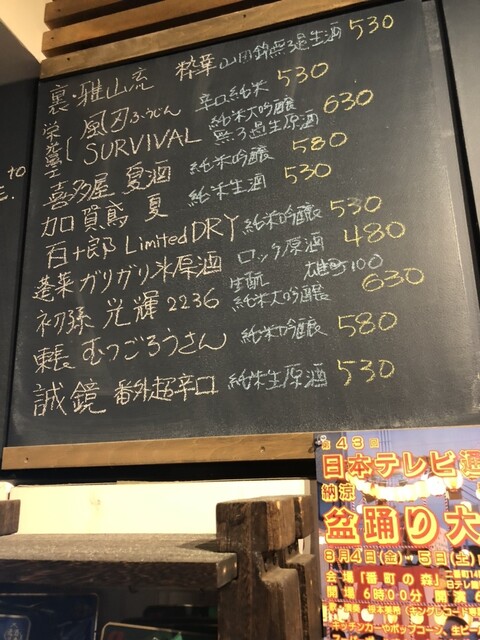 裏・雅山流 粋華 山田錦無ろ過生酒 530
栄光冨士 風刃ふうじん 辛口純米 530
SURVIVAL 純米大吟醸 無ろ過生原酒 630
喜多屋 夏酒 純米吟醸 580
加賀鳶 夏 純米生酒 530
百十郎 Limited DRY 純米吟醸 530
蓬莱 ガリガリ氷原酒 ロック原酒 480
初孫 光輝 2236 生酛 純米大吟醸 雄町100 630
東長 むつごろうさん 純米吟醸 580
誠鏡 番外超辛口 純米生原酒 530
to
第43回
日本テレビ
納涼
盆踊り大
8月4日(金)・5日(土)
会場「番町の森」
開場 6時00分 開演 6
キッチンカーやポップコーン、生ビー